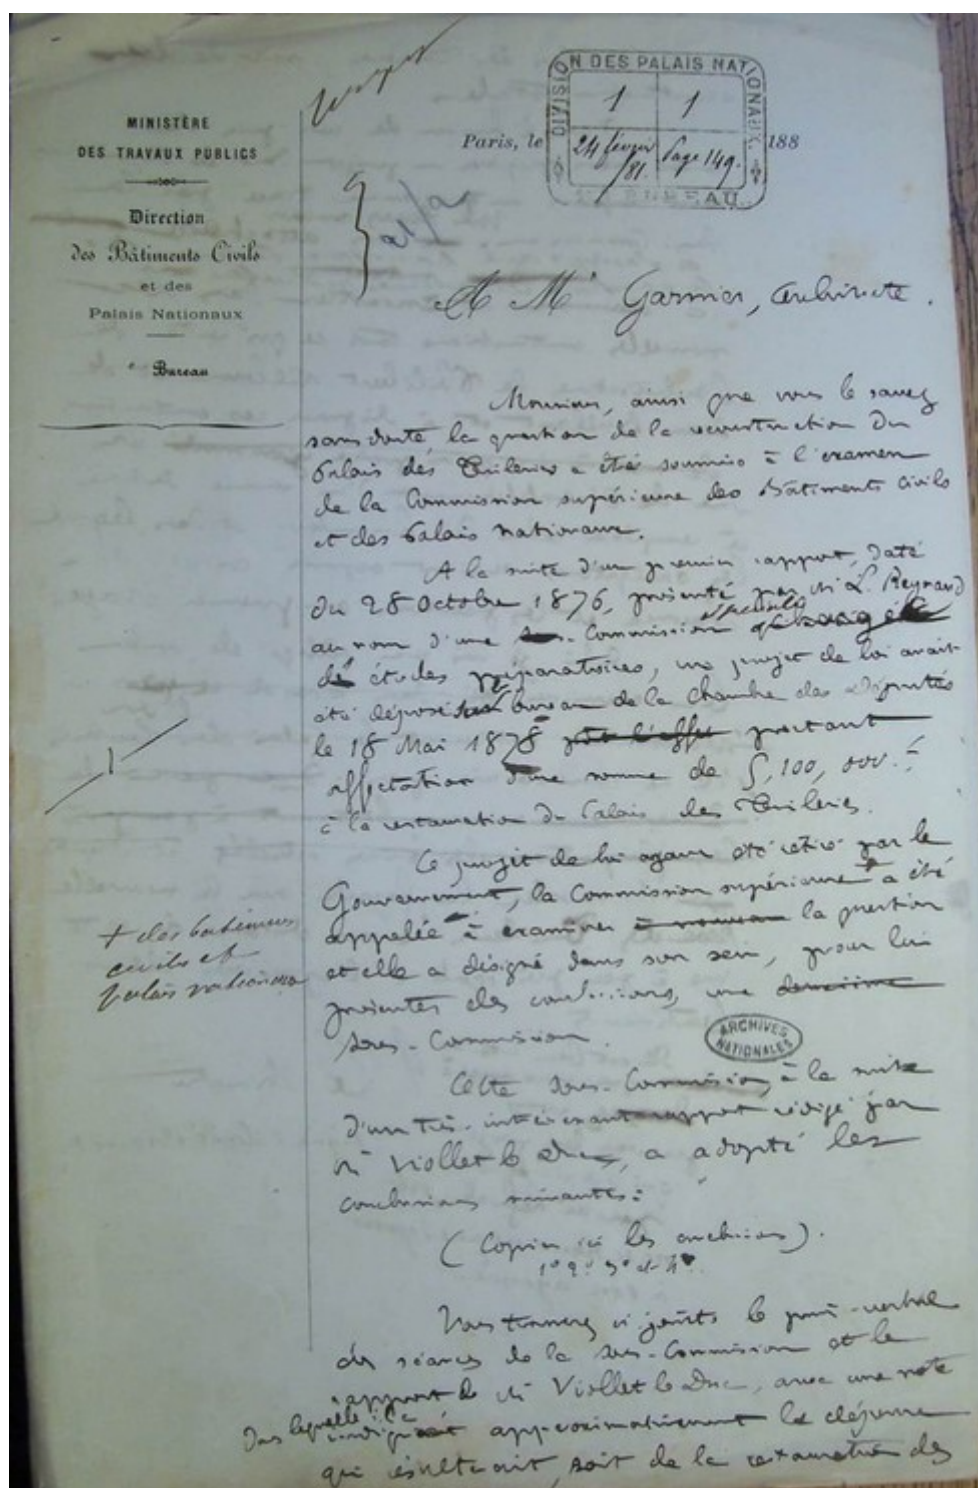 MINISTÈRE
DES TRAVAUX PUBLICS
Direction
des Bâtiments Civils
et des
Palais Nationaux
e Bureau
Paris, le
188
DIVISION DES PALAIS NATIONAUX.
1 1
24 février /81. Page 149.
BUREAU
A Mr Garnier, Architecte.
Monsieur, ainsi que vous le savez
sans doute la question de la reconstruction du
Palais des Tuileries a été soumise à l'examen
de la Commission supérieure des Bâtiments civils
et des Palais nationaux.
A la suite d'un premier rapport, daté
du 28 Octobre 1876, présenté par M. L. Reynaud
au nom d'une Commission spéciale
d'études préparatoires, un projet de loi avait
été déposé sur le bureau de la Chambre des Députés
le 18 Mai 1878 portant
affectation d'une somme de 5,100,000 f
à la restauration du Palais des Tuileries.
Ce projet de loi ayant été retiré par le
Gouvernement, la Commission supérieure + a été
appelée à examiner à nouveau la question
et elle a désigné dans son sein, pour lui
présenter des conclusions, une deuxième
Sous-Commission.
+ des bâtiments
civils et
palais nationaux
ARCHIVES
NATIONALES
Cette Sous-Commission, à la suite
d'un très-intéressant rapport rédigé par
M Viollet le Duc, a adopté les
conclusions suivantes:
(Copier ici les conclusions).
1° 2° 3° et 4°
Vous trouverez ci joints le procès-verbal
des séances de la Sous-Commission et le
rapport de M Viollet le Duc, avec une note
dans laquelle il a indiqué approximativement la dépense
qui résulterait, soit de la restauration des